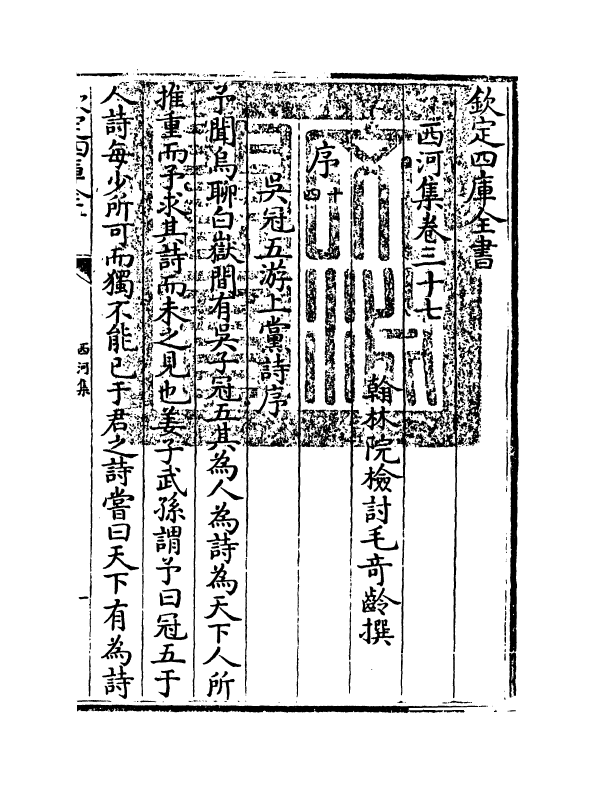 欽定四庫全書
西河集卷三十七
翰林院檢討毛奇齡撰
序十四
吳冠五游上黨詩序
予聞烏聊白嶽間有吳子冠五其為人為詩為天下人所
推重而予求其詩而未之見也姜子武孫謂予曰冠五于
人詩每少所可而獨不能已于君之詩嘗曰天下有為詩
西河集
一